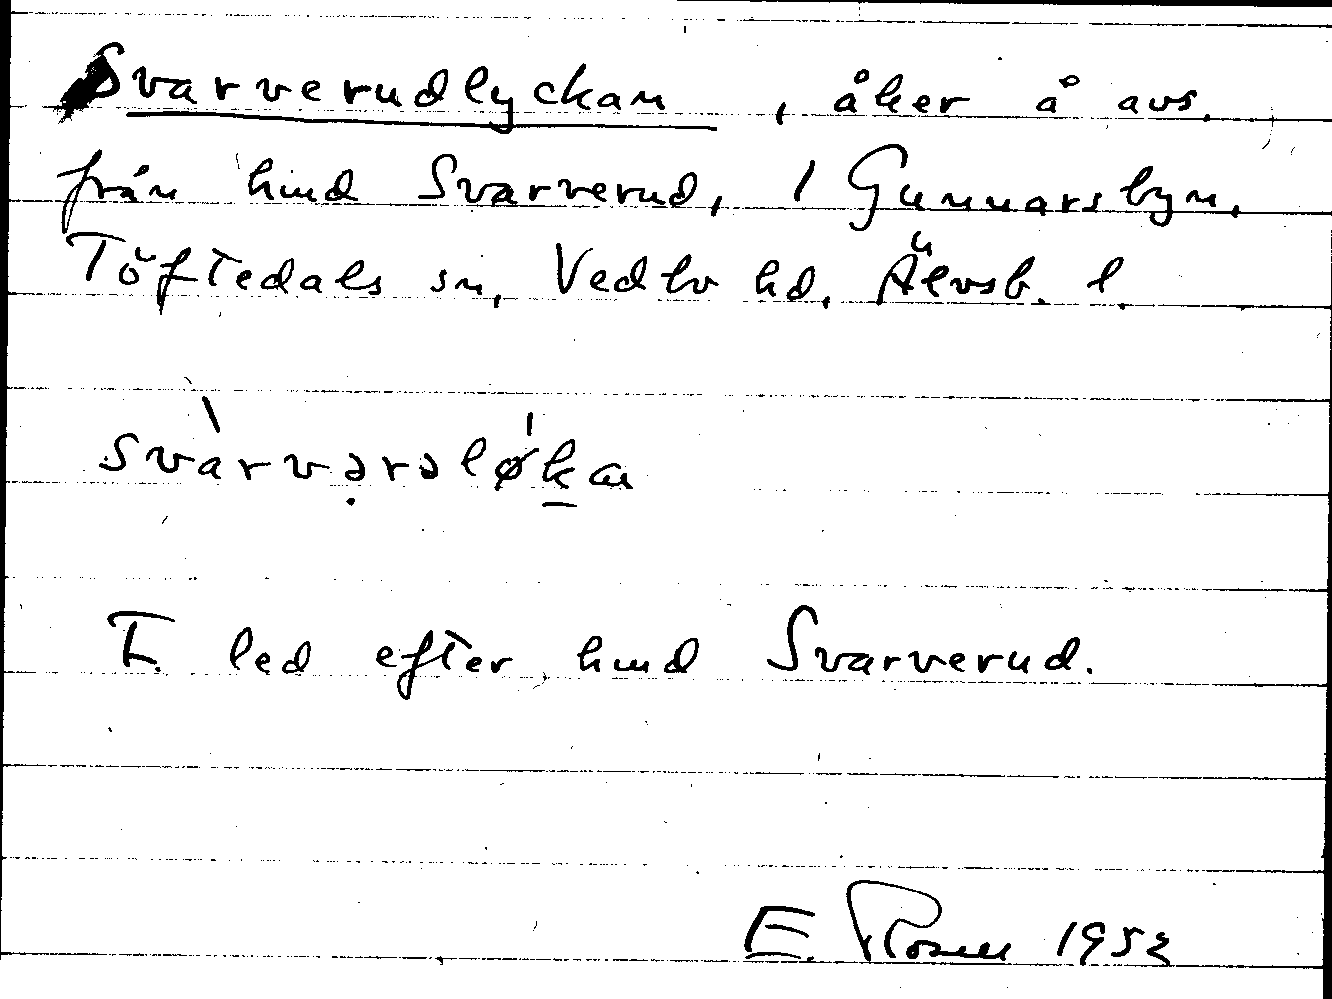 Svarverudlyckan, åker å avs.
från hmd Svarverud, 1 Gunnarsbyn,
Töftedals sn, Vedbo hd, Älvsb. l.
svàrvərəløkan
F. led efter hmd Svarverud.
E. Rosell 1952